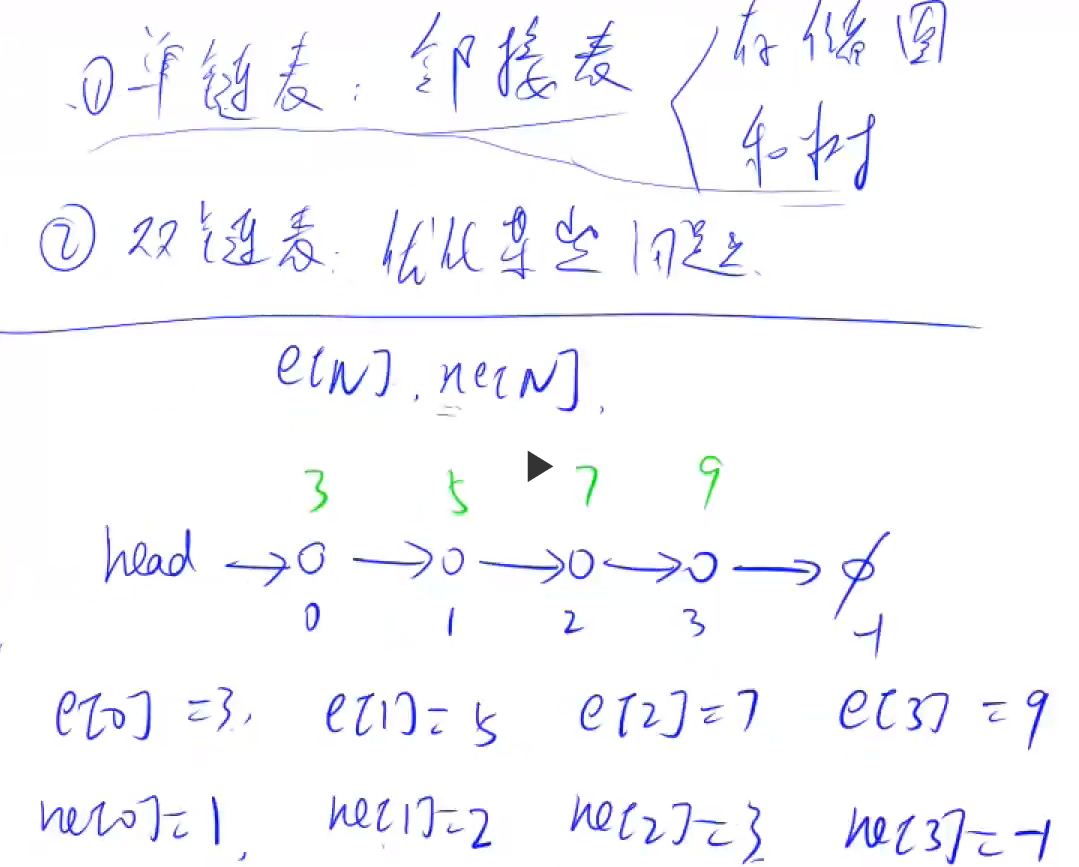 ①单链表：邻接表 存储图
和树
②双链表：优化某些问题.
e[N], ne[N],
3 5 7 9
head → O → O → O → O → ∅
0 1 2 3 -1
e[0]=3, e[1]=5 e[2]=7 e[3]=9
ne[0]=1, ne[1]=2 ne[2]=3 ne[3]=-1